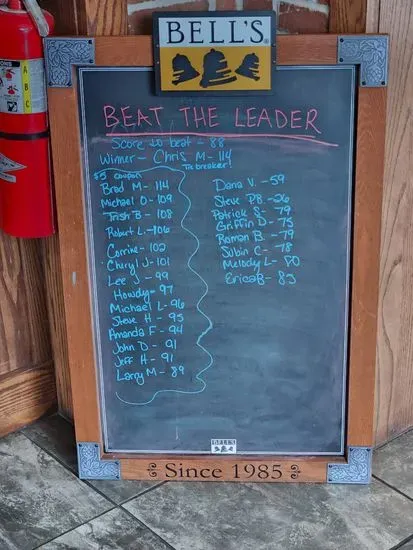 BELL'S
BEAT THE LEADER
Score to beat - 88
Winner - Chris M - 114
Tie breaker!
$5 coupon
Brad M - 114
Michael O - 109
Trish B - 108
Robert L - 106
Corrine - 102
Cheryl J - 101
Lee J - 99
Howdy - 97
Michael L - 96
Steve H - 95
Amanda F - 94
John D - 91
Jeff H - 91
Larry M - 89
Dana V. - 59
Steve PB - 26
Patrick S - 79
Griffin D - 75
Roman B. - 79
Subin C - 78
Melody L - 80
Erica B - 83
BELL'S
Since 1985
A B C